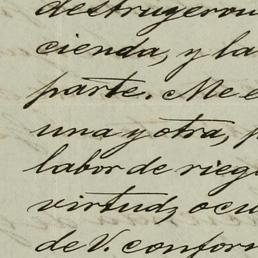 destruyeron
cienda, y la
parte. Me e
una y otra, p
labor de rieg
virtud, ocu
de V. conform